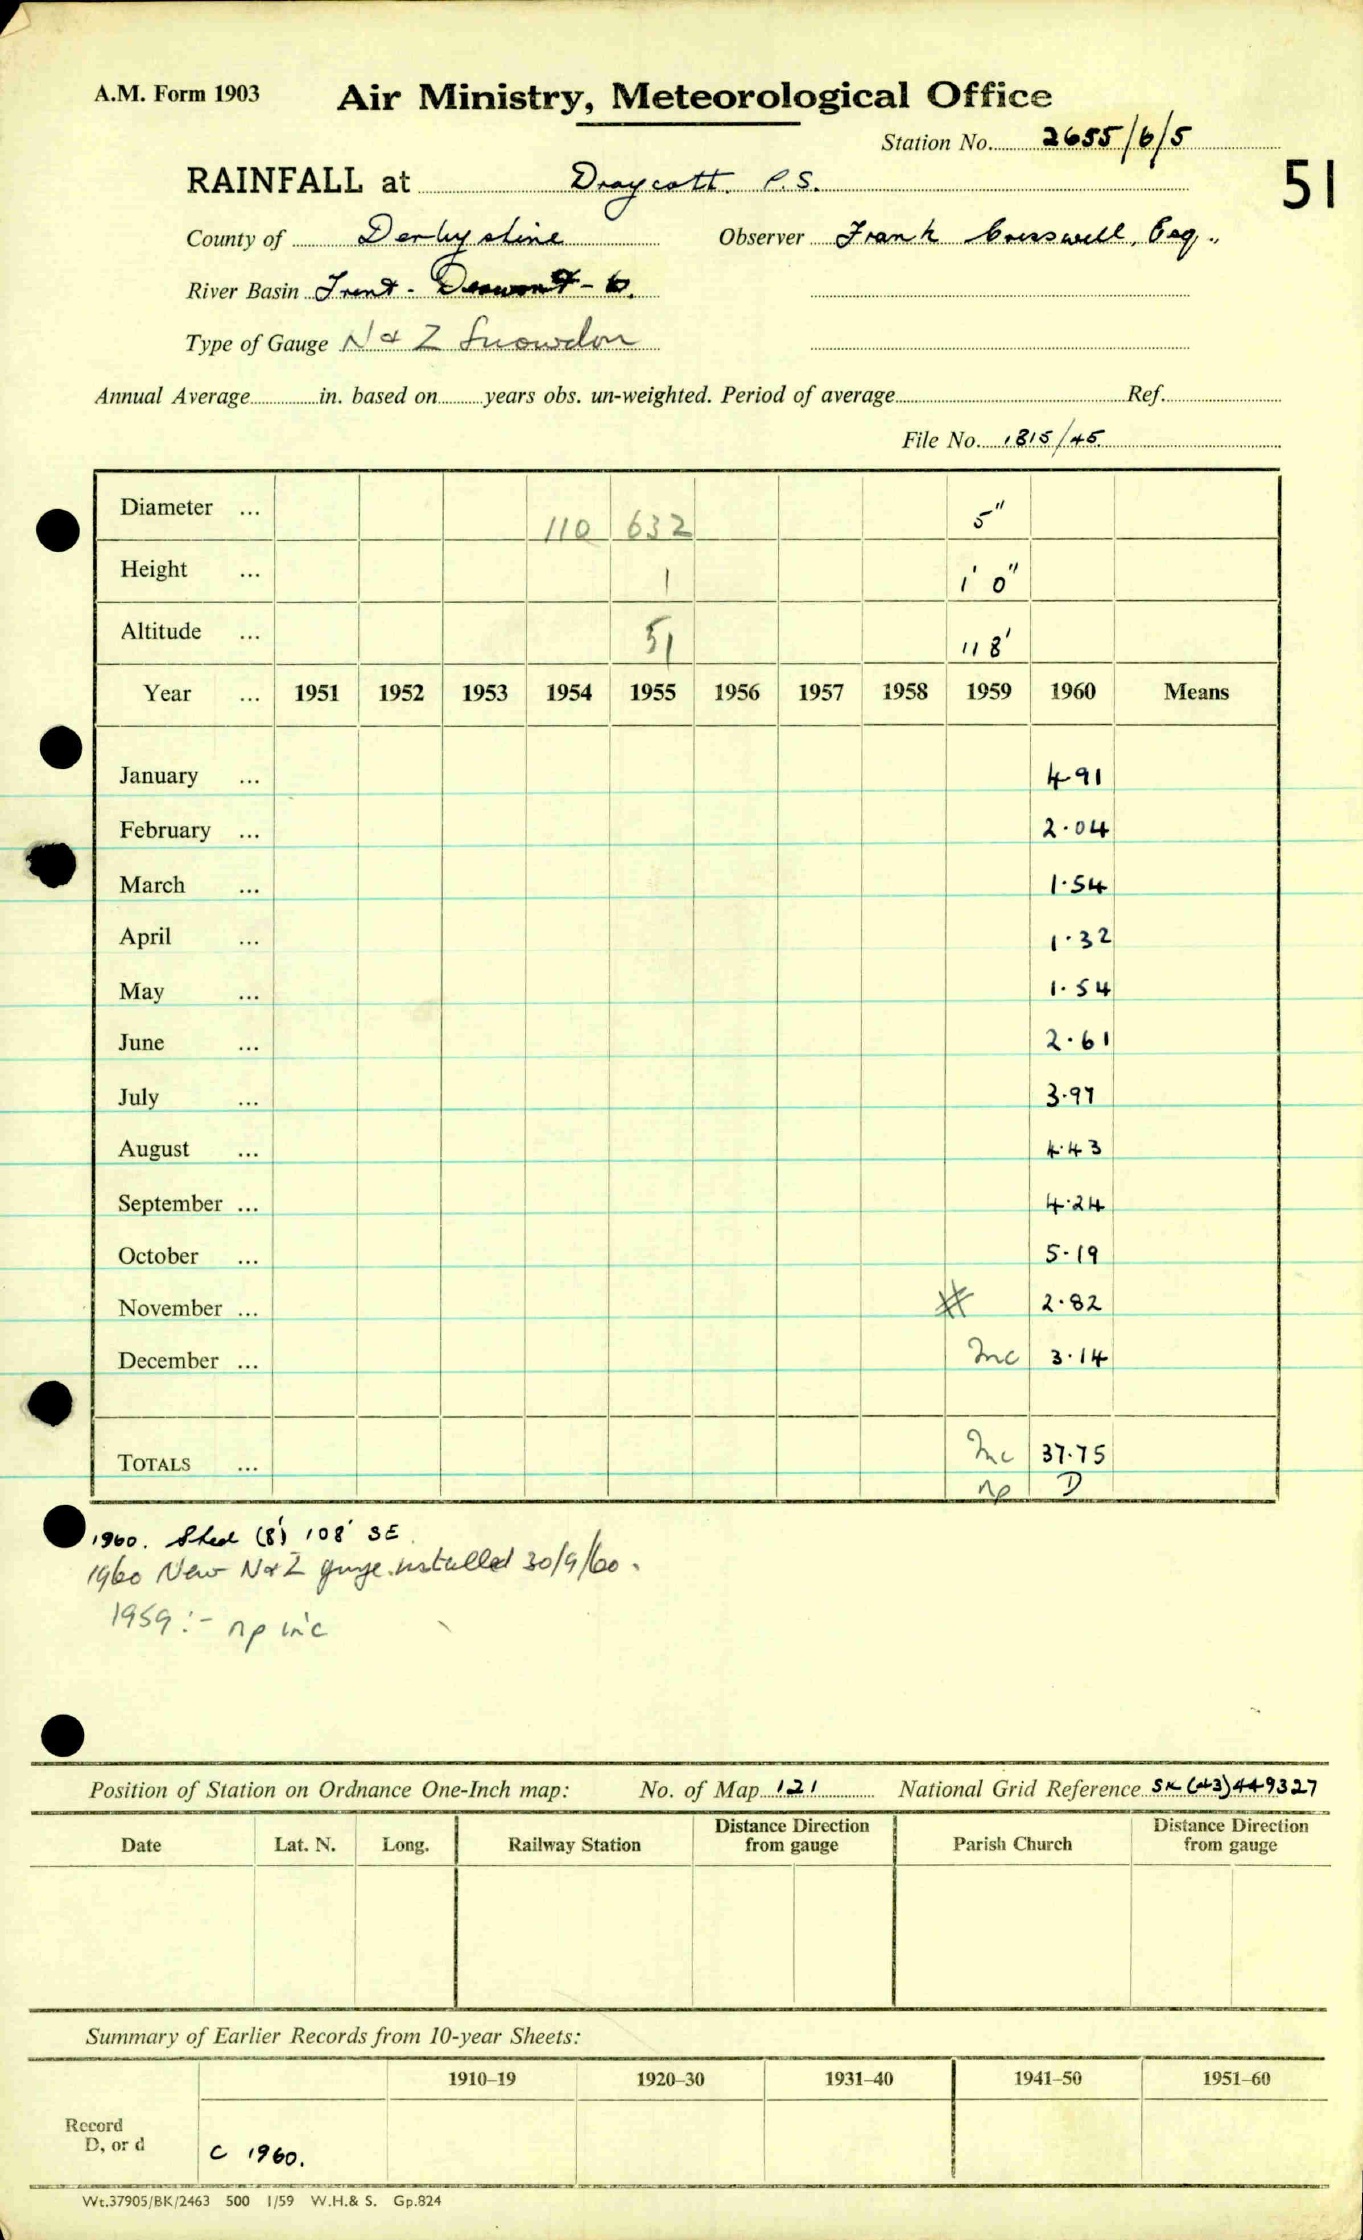 A.M. Form 1903 Air Ministry, Meteorological Office
Station No. 2655/6/5
51
RAINFALL at Draycott. P.S.
County of Derbyshire Observer Frank Cresswell, Esq.,
River Basin Trent - Derwent -
Type of Gauge N & Z Snowdon
Annual Average in. based on years obs. un-weighted. Period of average Ref.
File No. 1815/45
Diameter ... 110 632 5"
Height ... 1 1' 0"
Altitude ... 51 118'
Year ... 1951 1952 1953 1954 1955 1956 1957 1958 1959 1960 Means
January ... 4.91
February ... 2.04
March ... 1.54
April ... 1.32
May ... 1.54
June ... 2.61
July ... 3.97
August ... 4.43
September ... 4.24
October ... 5.19
November ... # 2.82
December ... Inc 3.14
TOTALS ... Inc 37.75
np D
1960. Shed (8') 108' SE.
1960 New N & Z gauge installed 30/9/60.
1959 :- np inc
Position of Station on Ordnance One-Inch map: No. of Map 121 National Grid Reference SK (43) 449327
Date Lat. N. Long. Railway Station Distance Direction from gauge Parish Church Distance Direction from gauge
Summary of Earlier Records from 10-year Sheets:
1910–19 1920–30 1931–40 1941–50 1951–60
Record
D, or d C 1960.
Wt.37905/BK/2463 500 1/59 W.H.& S. Gp.824